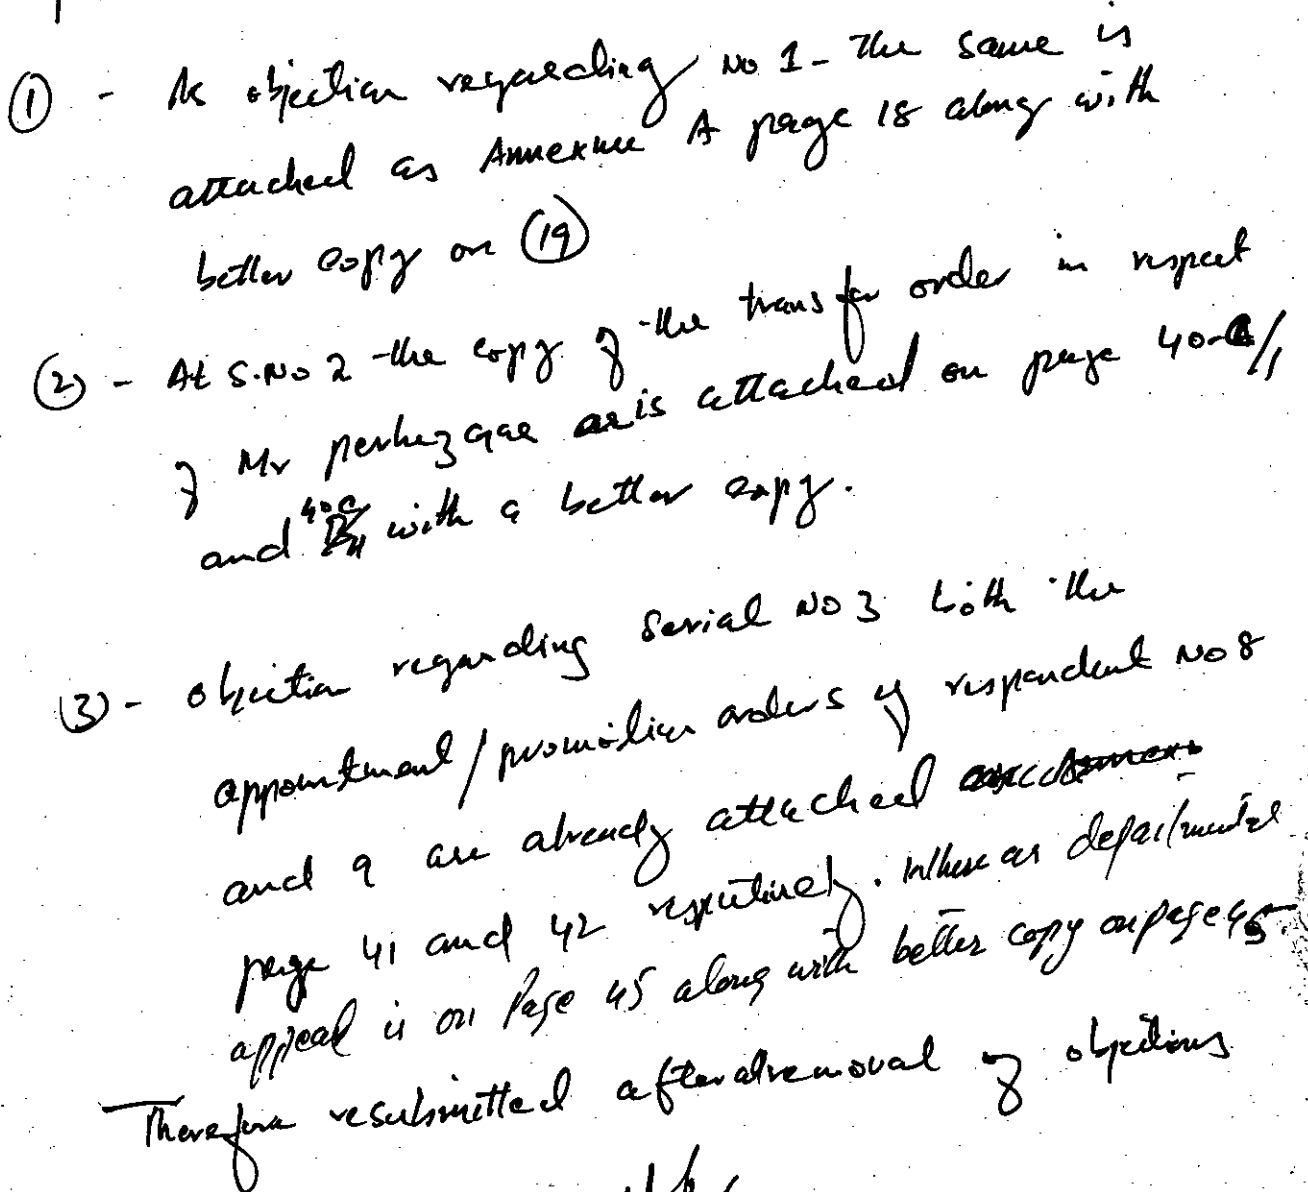 (1) - As objection regarding No 1 - The same is
attached as Annexure A page 18 along with
better copy on (19)
(2) - At S.No 2 the copy of the transfer order in respect
of Mr perhezgar is attached on page 40-
and 40C with a better copy.
(3) - objection regarding Serial No 3 both the
appointment/promotion orders of respondent No 8
and 9 are already attached
page 41 and 42 respectively. Whereas departmental
appeal is on Page 45 along with better copy on page 45
Therefore resubmitted after removal of objections